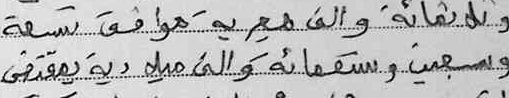 وثلاثمائة وألف هجرية موافق تسعة
وسبعين وستعمائة وألف ميلادية بمقتضى